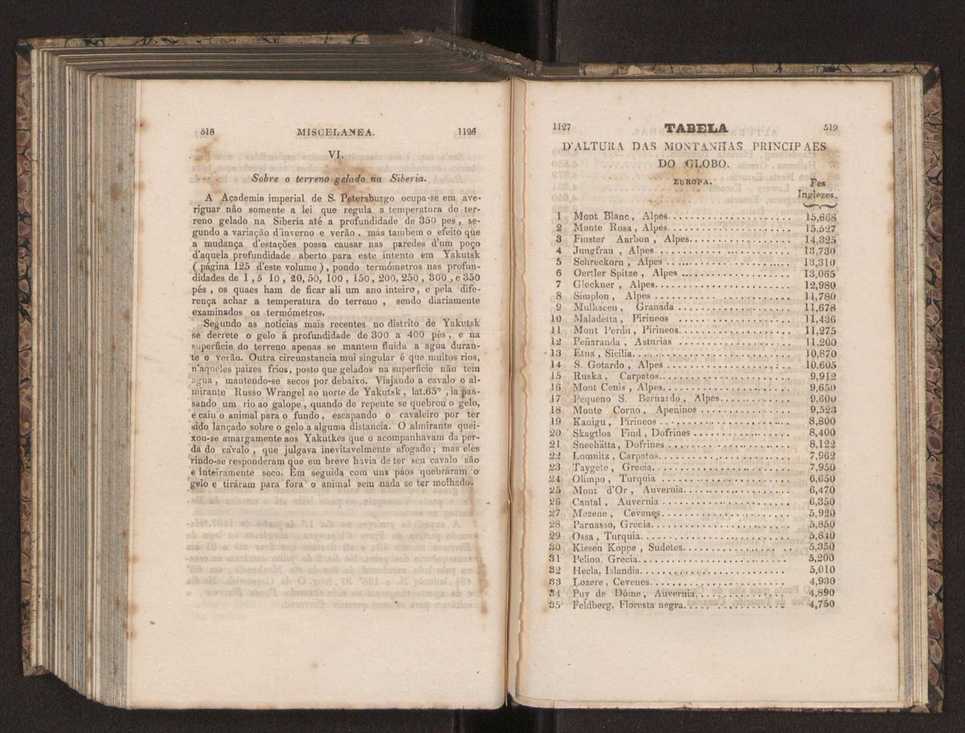 518 MISCELANEA. 1126
VI.
Sobre o terreno gelado na Siberia.
A Academia imperial de S. Petersburgo ocupa-se em ave-
riguar não somente a lei que regula a temperatura do ter-
reno gelado na Siberia até a profundidade de 350 pes, se-
gundo a variação d'inverno e verão, mas tambem o efeito que
a mudança d'estações possa causar nas paredes d'um poço
d'aquela profundidade aberto para este intento em Yakutsk
(página 125 d'este volume), pondo termómetros nas profun-
didades de 1, 5 10, 20, 50, 100, 150, 200, 250, 300, e 350
pés, os quaes ham de ficar ali um ano inteiro, e pela dife-
rença achar a temperatura do terreno, sendo diariamente
examinados os termómetros.
Segundo as notícias mais recentes no distrito de Yakutsk
se derrete o gelo á profundidade de 300 a 400 pés, e na
superfície do terreno apenas se mantem fluida a agua duran-
te o verão. Outra circumstancia mui singular é que muitos rios,
n'aqueles paizes frios, posto que gelados na superfície não tem
agua, mantendo-se secos por debaixo. Viajando a cavalo o al-
mirante Russo Wrangel ao norte de Yakutsk, lat. 65°, ia pas-
sando um rio ao galope, quando de repente se quebrou o gelo,
e caiu o animal para o fundo, escapando o cavaleiro por ter
sido lançado sobre o gelo a alguma distancia. O almirante quei-
xou-se amargamente aos Yakutkes que o acompanhavam da per-
da do cavalo, que julgava inevitavelmente afogado; mas eles
rindo-se responderam que em breve havia de ter seu cavalo são
e inteiramente seco. Em seguida com uns páos quebráram o
gelo e tiráram para fora o animal sem nada se ter molhado.
1127 TABELA 519
D'ALTURA DAS MONTANHAS PRINCIPAES
DO GLOBO.
EUROPA. Pes
Inglezes.
1 Mont Blanc, Alpes. 15,668
2 Monte Rosa, Alpes. 15,527
3 Finster Aarhon, Alpes. 14,325
4 Jungfrau, Alpes. 13,730
5 Schreckorn, Alpes. 13,310
6 Oertler Spitze, Alpes 13,065
7 Gleckner, Alpes. 12,980
8 Simplon, Alpes 11,780
9 Mulhacen, Granada 11,678
10 Maladetta, Pirineos 11,436
11 Mont Perdu, Pirineos. 11,275
12 Peñaranda, Asturias 11,200
13 Etna, Sicilia. 10,870
14 S. Gotardo, Alpes 10,605
15 Ruska, Carpatos. 9,912
16 Mont Cenis, Alpes. 9,650
17 Pequeno S. Bernardo, Alpes. 9,600
18 Monte Corno, Apeninos 9,523
19 Kanigu, Pirineos 8,800
20 Skagtlos Find, Dofrines 8,400
21 Sneehätta, Dofrines 8,122
22 Lomnitz, Carpatos. 7,962
23 Taygete, Grecia. 7,950
24 Olimpo, Turquia 6,650
25 Mont d'Or, Auvernia. 6,470
26 Cantal, Auvernia 6,350
27 Mezene, Cevenes. 5,920
28 Parnasso, Grecia. 5,850
29 Ossa, Turquia. 5,640
30 Kiesen Koppe, Sudetes. 5,350
31 Pelion, Grecia. 5,200
32 Hecla, Islandia. 5,010
33 Lozere, Cevenes. 4,930
34 Puy de Dôme, Auvernia. 4,890
35 Feldberg, Floresta negra. 4,750